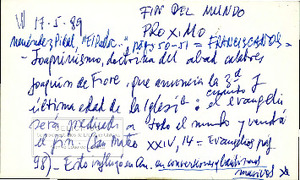 17-I-89
FIN DEL MUNDO
PROXIMO
Menéndez Pidal, "El P. Las..." pags 50-51 = FRANCISCANOS =
- Joaquinismo, doctrina del abad calabrés
Joaquín de Fiore, que anuncia la 3ª y
última edad de la Iglesia: cuando el evangelio
será predicado a todo el mundo y vendrá
el fin (San Mateo XXIV, 14 = Evangelios pág
98) - Esto influyó en Am. en conversiones y bautismos
masivos